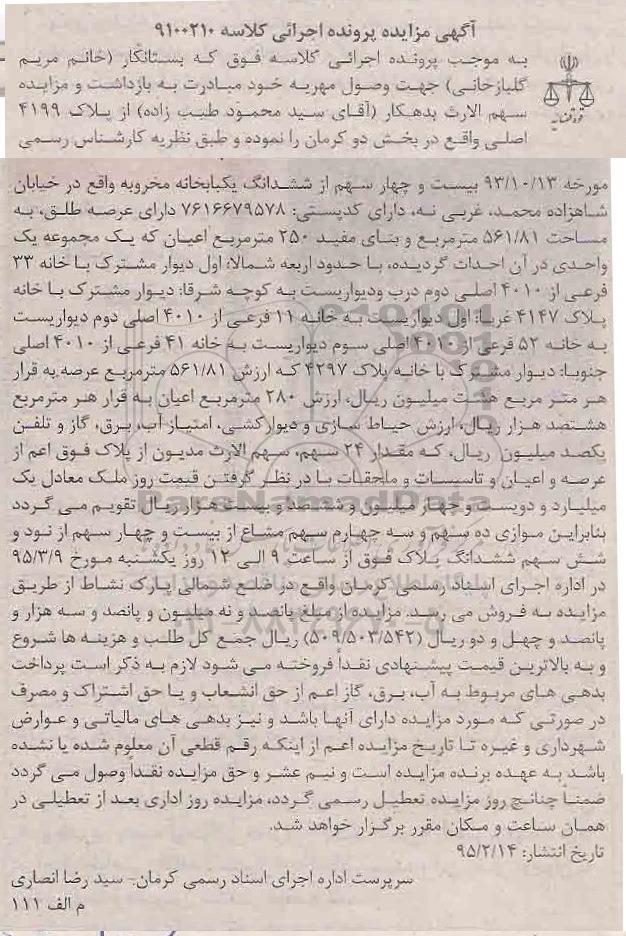 آگهی مزایده پرونده اجرائی کلاسه ۹۱۰۰۲۱۰
به موجب پرونده اجرائی کلاسه فوق که بستانکار (خانم مریم
گلبازخانی) جهت وصول مهریه خود مبادرت به بازداشت و مزایده
سهم الارث بدهکار (آقای سید محمود طبیب زاده) از پلاک ۴۱۹۹
اصلی واقع در بخش دو کرمان را نموده و طبق نظریه کارشناس رسمی
قوه قضائیه
مورخه ۹۳/۱۰/۱۳ بیست و چهار سهم از ششدانگ یکبابخانه مخروبه واقع در خیابان
شاهزاده محمد، غربی نه، دارای کدپستی: ۷۶۱۶۶۷۹۵۷۸ دارای عرصه طلق، به
مساحت ۵۶۱/۸۱ مترمربع و بنای مفید ۲۵۰ مترمربع اعیان که یک مجموعه یک
واحدی در آن احداث گردیده، با حدود اربعه شمالا: اول دیوار مشترک با خانه ۳۳
فرعی از ۴۰۱۰ اصلی دوم درب ودیواریست به کوچه شرقا: دیوار مشترک با خانه
پلاک ۴۱۴۷ غربا: اول دیواریست به خانه ۱۱ فرعی از ۴۰۱۰ اصلی دوم دیواریست
به خانه ۵۲ فرعی از ۴۰۱۰ اصلی سوم دیواریست به خانه ۴۱ فرعی از ۴۰۱۰ اصلی
جنوبا: دیوار مشترک با خانه پلاک ۴۲۹۷ که ارزش ۵۶۱/۸۱ مترمربع عرصه به قرار
هر متر مربع هشت میلیون ریال، ارزش ۲۸۰ مترمربع اعیان به قرار هر مترمربع
هشتصد هزار ریال، ارزش حیاط سازی و دیوارکشی، امتیاز آب، برق، گاز و تلفن
یکصد میلیون ریال، که مقدار ۲۴ سهم، سهم الارث مدیون از پلاک فوق اعم از
عرصه و اعیان و تاسیسات و ملحقات با در نظر گرفتن قیمت روز ملک معادل یک
میلیارد و دویست و چهار میلیون و ششصد و بیست هزار ریال تقویم می گردد
بنابراین موازی ده سهم و سه چهارم سهم مشاع از بیست و چهار سهم از نود و
شش سهم ششدانگ پلاک فوق از ساعت ۹ الی ۱۲ روز یکشنبه مورخ ۹۵/۳/۹
در اداره اجرای اسناد رسمی کرمان واقع در ضلع شمالی پارک نشاط از طریق
مزایده به فروش می رسد. مزایده از مبلغ پانصد و نه میلیون و پانصد و سه هزار و
پانصد و چهل و دو ریال (۵۰۹/۵۰۳/۵۴۲) ریال جمع کل طلب و هزینه ها شروع
و به بالاترین قیمت پیشنهادی نقداً فروخته می شود لازم به ذکر است پرداخت
بدهی های مربوط به آب، برق، گاز اعم از حق انشعاب و یا حق اشتراک و مصرف
در صورتی که مورد مزایده دارای آنها باشد و نیز بدهی های مالیاتی و عوارض
شهرداری و غیره تا تاریخ مزایده اعم از اینکه رقم قطعی آن معلوم شده یا نشده
باشد به عهده برنده مزایده است و نیم عشر و حق مزایده نقداً وصول می گردد
ضمناً چنانچ روز مزایده تعطیل رسمی گردد، مزایده روز اداری بعد از تعطیلی در
همان ساعت و مکان مقرر برگزار خواهد شد.
تاریخ انتشار: ۹۵/۲/۱۴
سرپرست اداره اجرای اسناد رسمی کرمان- سید رضا انصاری
م الف ۱۱۱
ParsNamadData